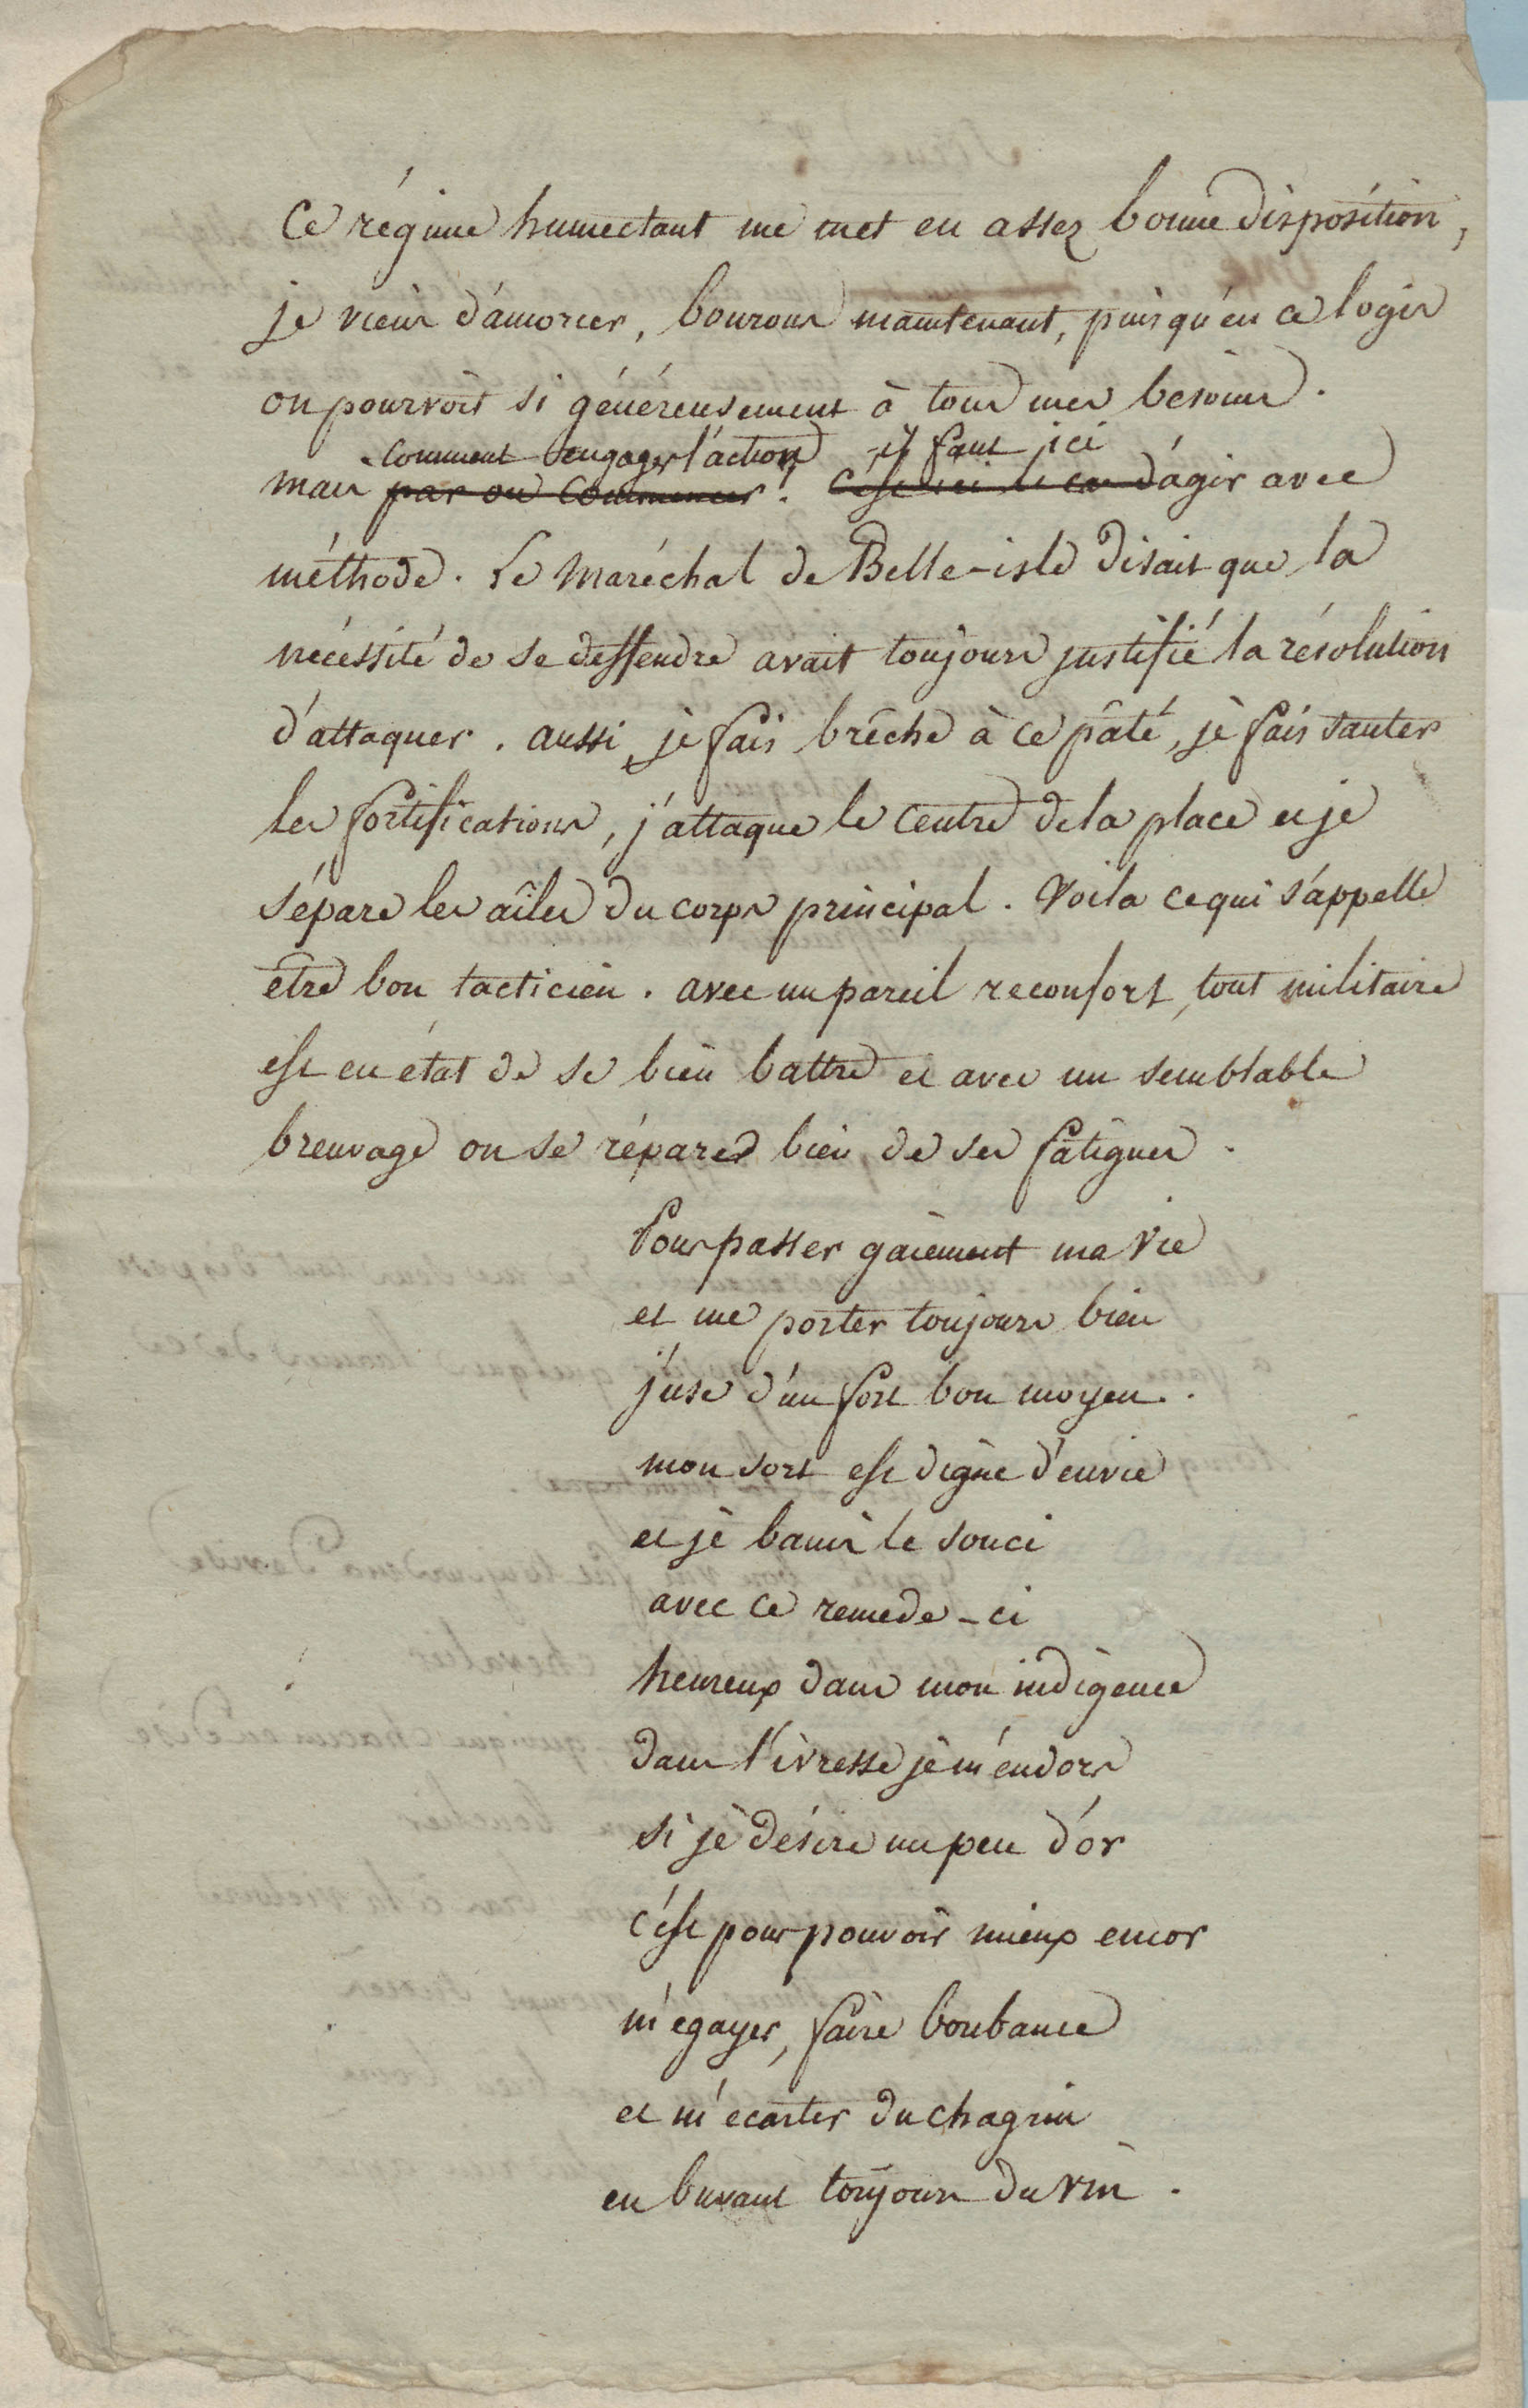 Ce régime humectant me met en assez bonne disposition,
je viens d'amorcer, bourons maintenant, puisqu'en ce logis
on pourvoit si généreusement à tous mes besoins.
comment engager l'action il faut ici
mais par ou commencer! c'est ici le cas d'agir avec
méthode. Le Maréchal de Belle-isle disait que la
nécéssité de se deffendre avait toujours justifié la résolution
d'attaquer. aussi, je fais brêche à ce pâté, je fais sauter
les fortifications, j'attaque le centre de la place et je
sépare les aîles du corps principal. Voila ce qui s'appelle
être bon tacticien. avec un pareil reconfort, tout militaire
est en état de se bien battre et avec un semblable
breuvage on se répare bien de ses fatigues.
Pour passer gaiement ma vie
et me porter toujours bien
j'use d'un fort bon moyen.
mon sort est digne d'envie
et je banis le souci
avec ce remede-ci
heureux dans mon indigence
dans l'ivresse je m'endors
si je désire un peu d'or
c'est pour pouvoir mieux encor
m'egayer, faire bonbance
et m'ecarter du chagrin
en buvant toujours du vin.